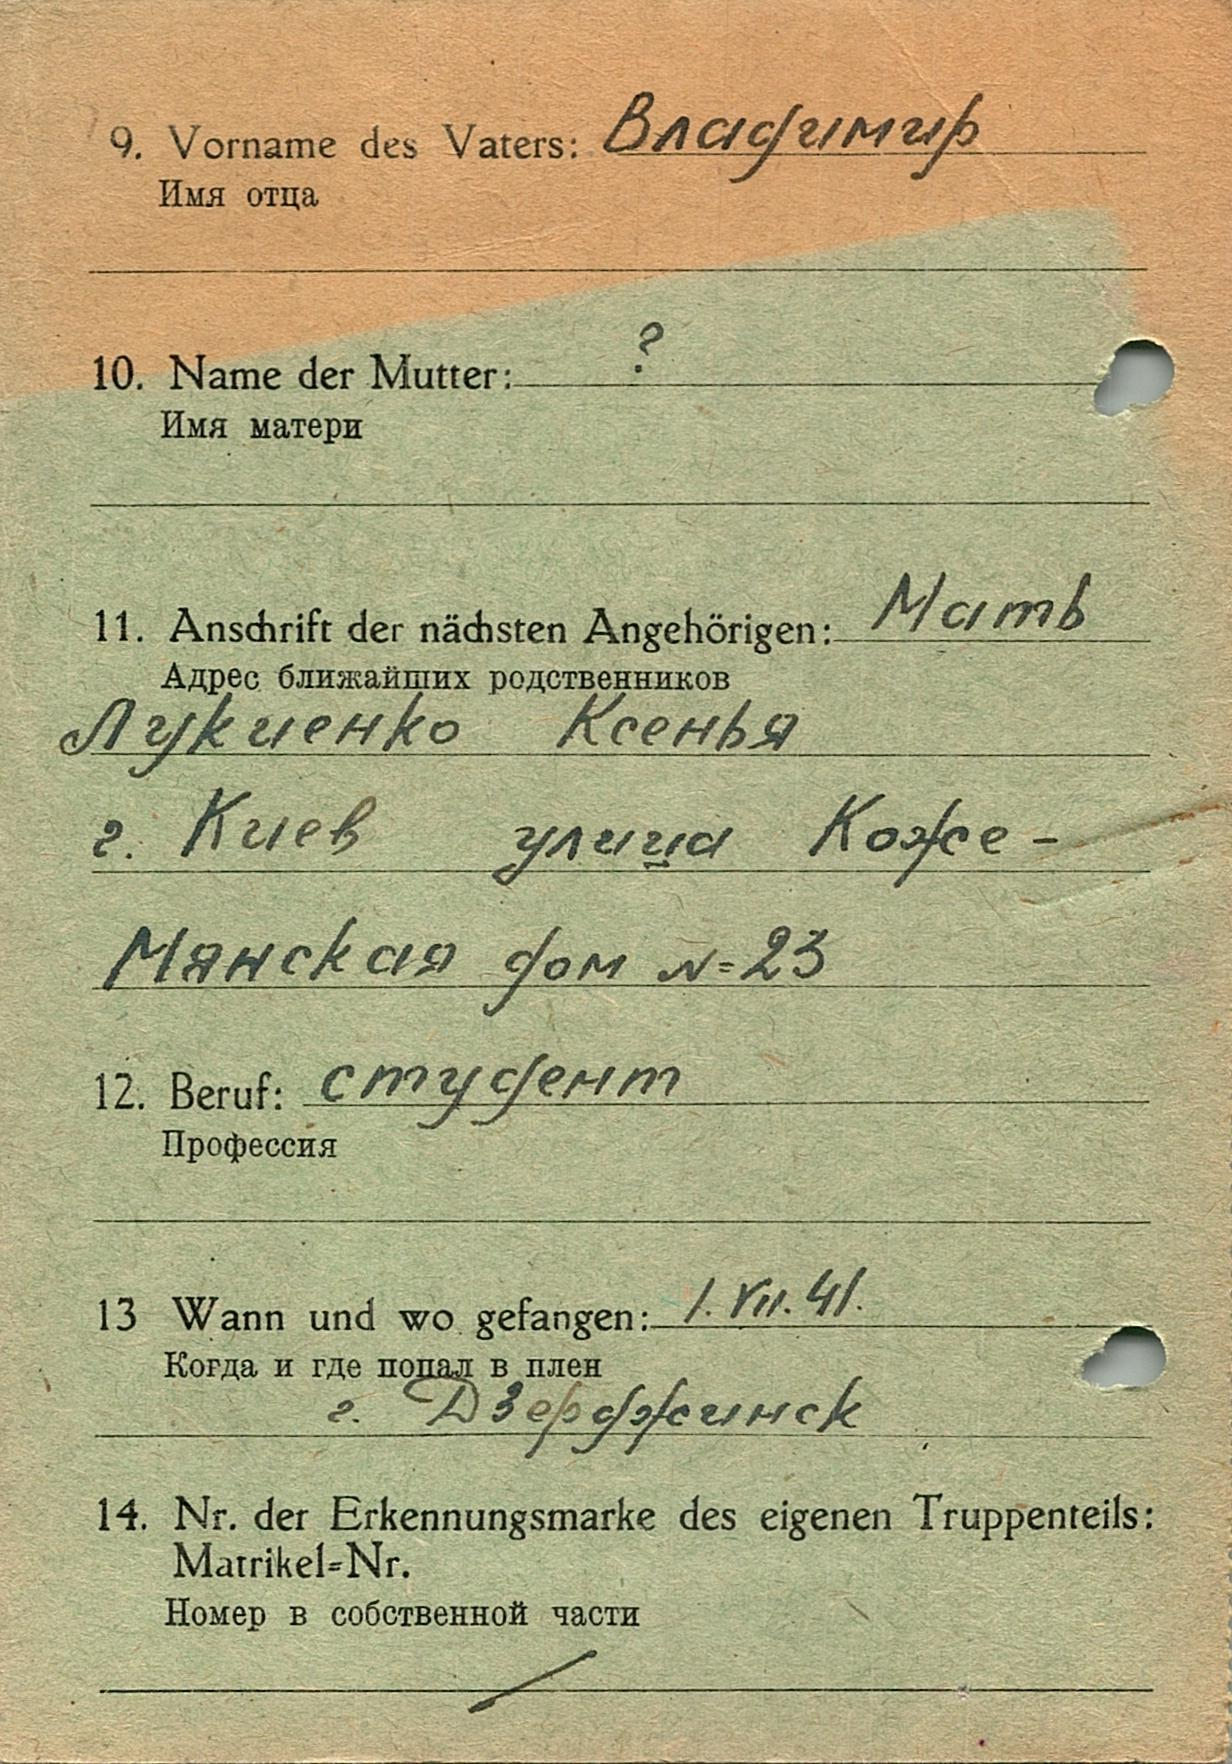 9. Vorname des Vaters: Владимир
Имя отца
10. Name der Mutter: ?
Имя матери
11. Anschrift der nächsten Angehörigen: Мать
Адрес ближайших родственников
Лукиенко Ксенья
г. Киев улица Коже-
Мянская дом N=23
12. Beruf: студент
Профессия
13 Wann und wo gefangen: 1. VII. 41.
Когда и где попал в плен
г. Дзерджинск
14. Nr. der Erkennungsmarke des eigenen Truppenteils:
Matrikel=Nr.
Номер в собственной части